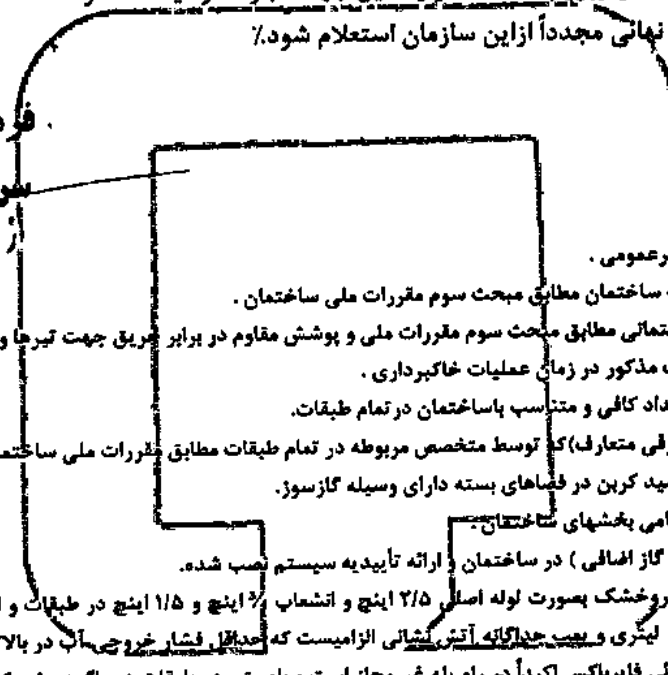 نهائی مجدداً ازاین سازمان استعلام شود٪
رعمومی .
ساختمان مطابق مبحث سوم مقررات ملی ساختمان .
تمانی مطابق مبحث سوم مقررات ملی و پوشش مقاوم در برابر حریق جهت تیرها و
مذکور در زمان عملیات خاکبرداری .
داد کافی و متناسب باساختمان درتمام طبقات.
قی متعارف)که توسط متخصص مربوطه در تمام طبقات مطابق مقررات ملی ساختم
سید کربن در فضاهای بسته دارای وسیله گازسوز.
امی بخشهای ساختمان .
گاز اضافی ) در ساختمان و ارائه تأییدیه سیستم نصب شده.
روخشک بصورت لوله اصلی ۲/۵ اینچ و انشعاب اینچ و ۱/۵ اینچ در طبقات و
لیتری و پمپ جداگانه آتش نشانی الزامیست که حداقل فشار خروجی آب در بالا